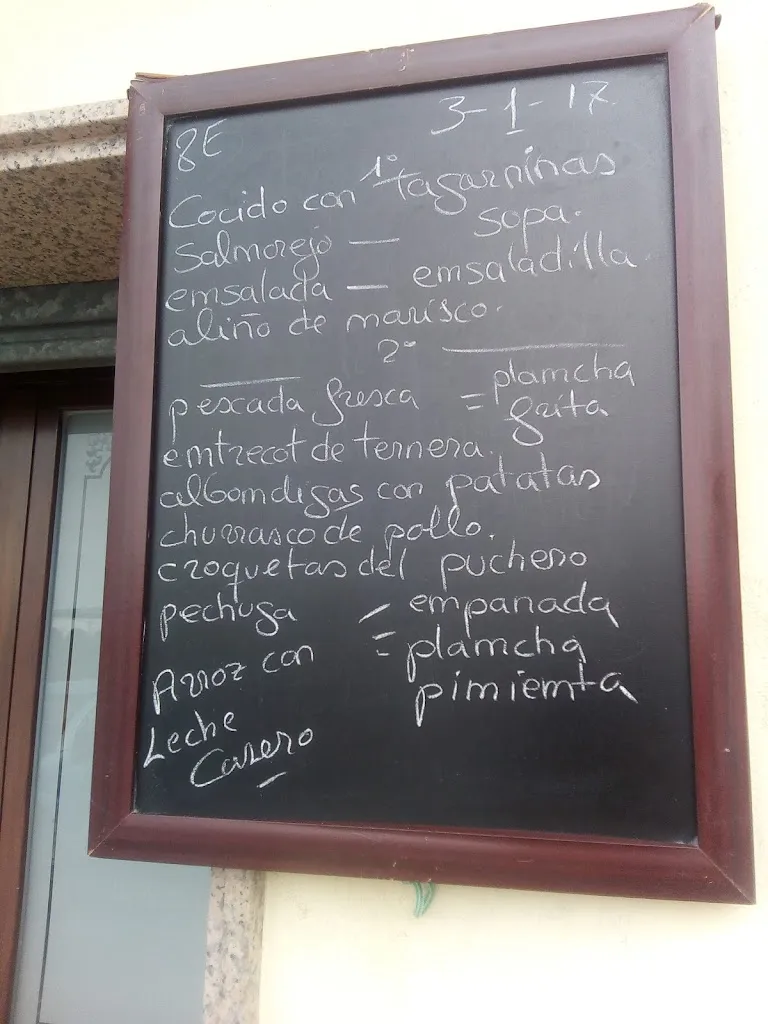 8E 3-1-17.
1º
Cocido con tagarninas
Salmorejo — sopa.
emsalada — emsaladilla.
aliño de marisco.
2º
pescada fresca = plamcha
frita
emtrecot de ternera.
albomdigas con patatas
churrasco de pollo.
croquetas del puchero
pechuga empanada
= plamcha
pimiemta
Arroz con
Leche
Casero